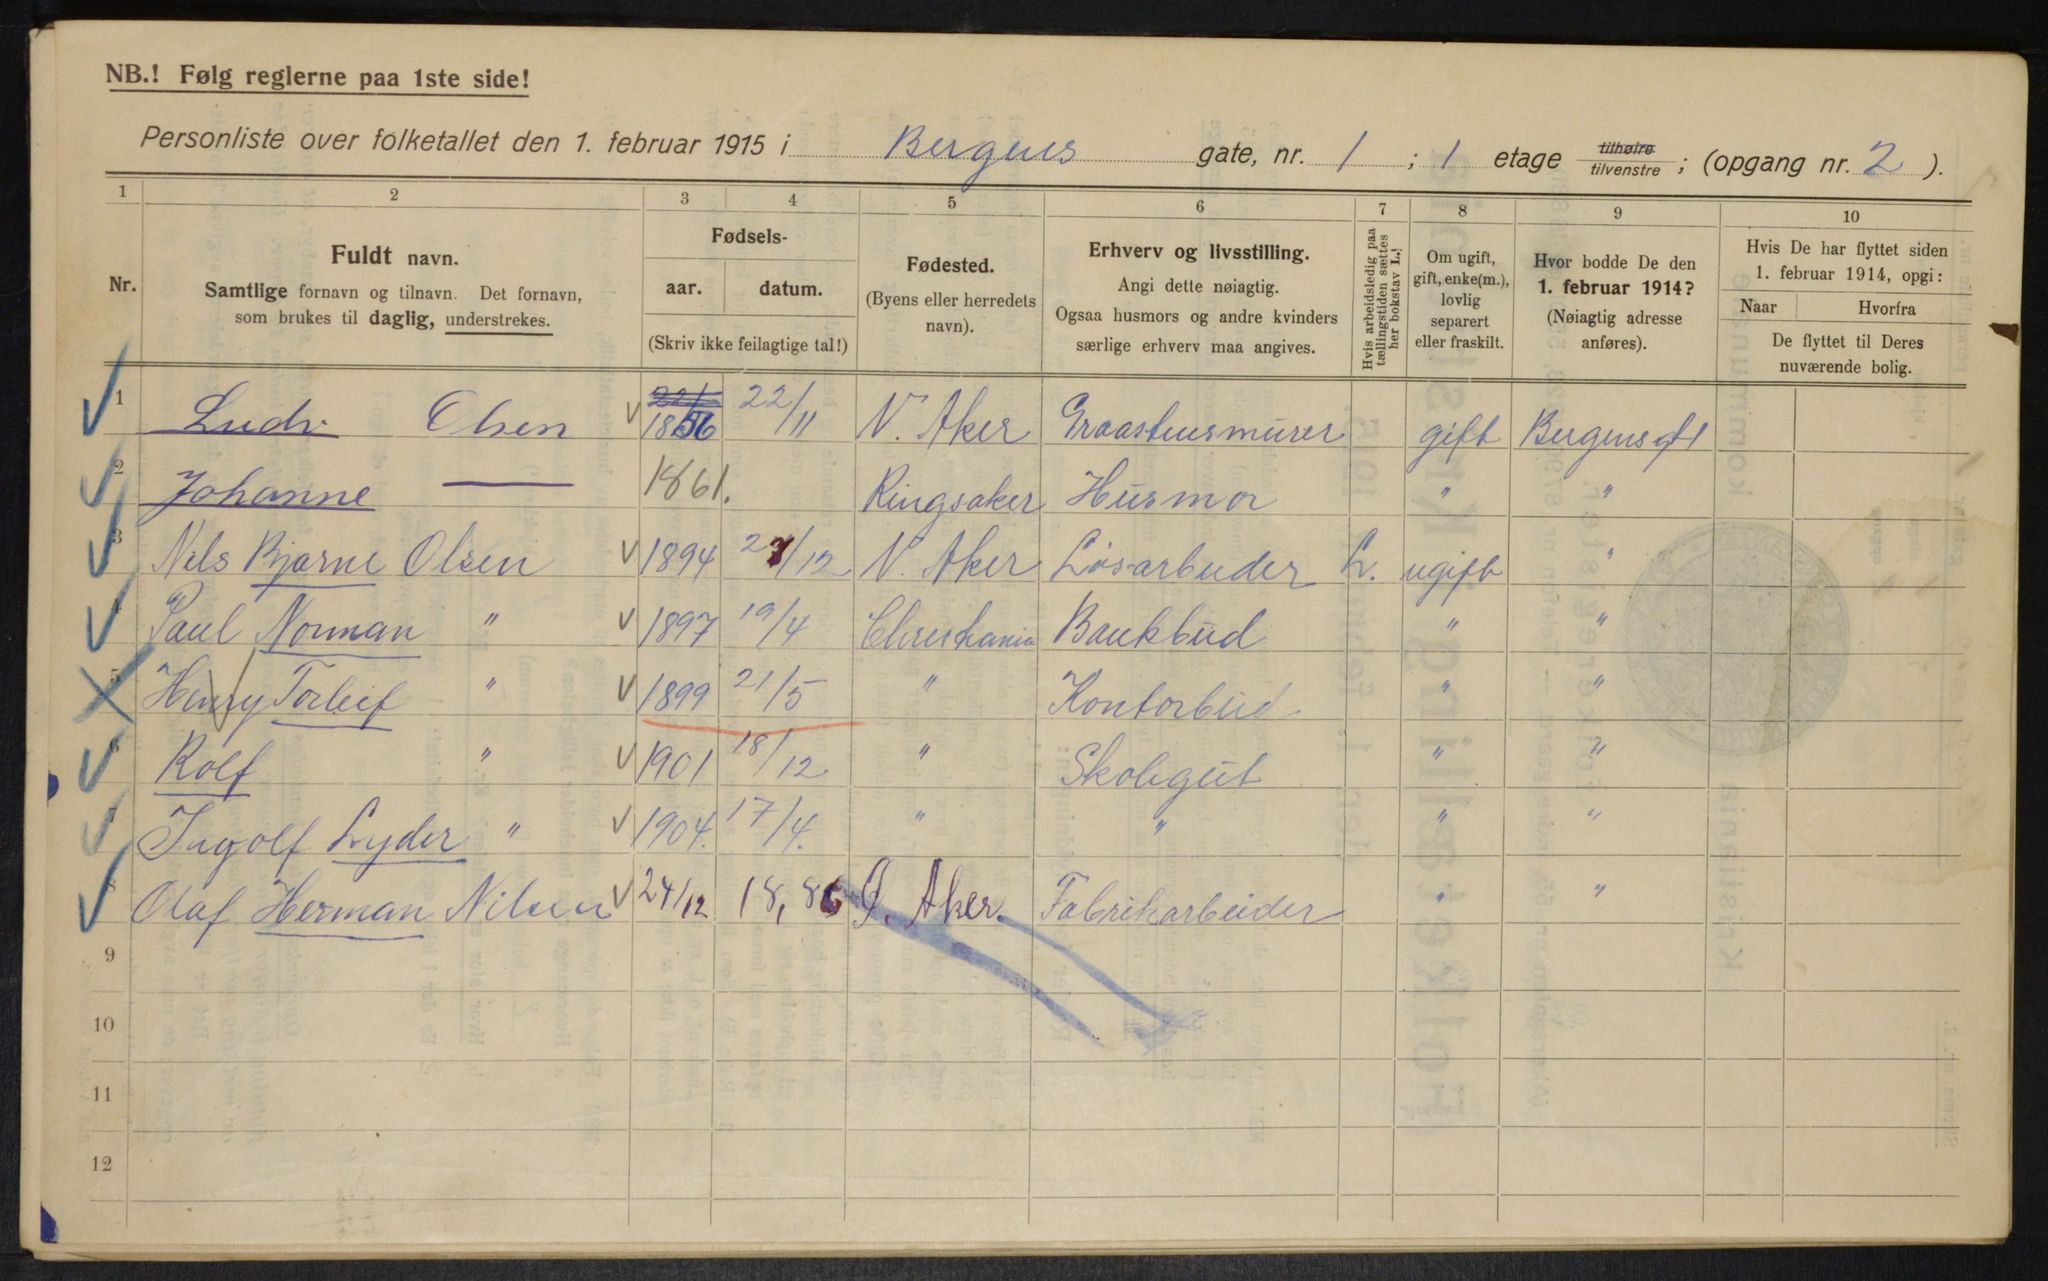 NB.! Følg reglerne paa 1ste side!
Personliste over folketallet den 1. februar 1915 i Bergens gate, nr. 1 ; 1 etage tilhøire tilvenstre ; (opgang nr. 2 ).
1 2 3 4 5 6 7 8 9 10
Nr.
Fuldt navn.
Samtlige fornavn og tilnavn. Det fornavn,
som brukes til daglig, understrekes.
Fødsels-
aar. datum.
(Skriv ikke feilagtige tal!)
Fødested.
(Byens eller herredets
navn).
Erhverv og livsstilling.
Angi dette nøiagtig.
Ogsaa husmors og andre kvinders
særlige erhverv maa angives.
Hvis arbeidsledig paa
tællingstiden sættes
her bokstav L.!
Om ugift,
gift, enke(m.),
lovlig
separert
eller fraskilt.
Hvor bodde De den
1. februar 1914?
(Nøiagtig adresse
anføres).
Hvis De har flyttet siden
1. februar 1914, opgi:
Naar Hvorfra
De flyttet til Deres
nuværende bolig.
1 Ludv Olsen 22/11 N. Aker Graastensmurer gift Bergensgt 1
2 Johanne — 1861. Ringsaker Husmor " "
3 Nils Bjarne Olsen 1894 /12 N. Aker Løsarbeider L. ugift "
4 Paul Norman " 1897 19/4 Christiania Bankbud " "
5 Henry Torleif " 1899 21/5 " Kontorbud " "
6 Rolf " 1901 18/12 " Skolegut " "
7 Ingolf Lyder " 1904. 17/4. " " " "
8 Olaf Herman Nilsen 24/12 18,86 Ø. Aker. Fabrikarbeider " "
9
10
11
12